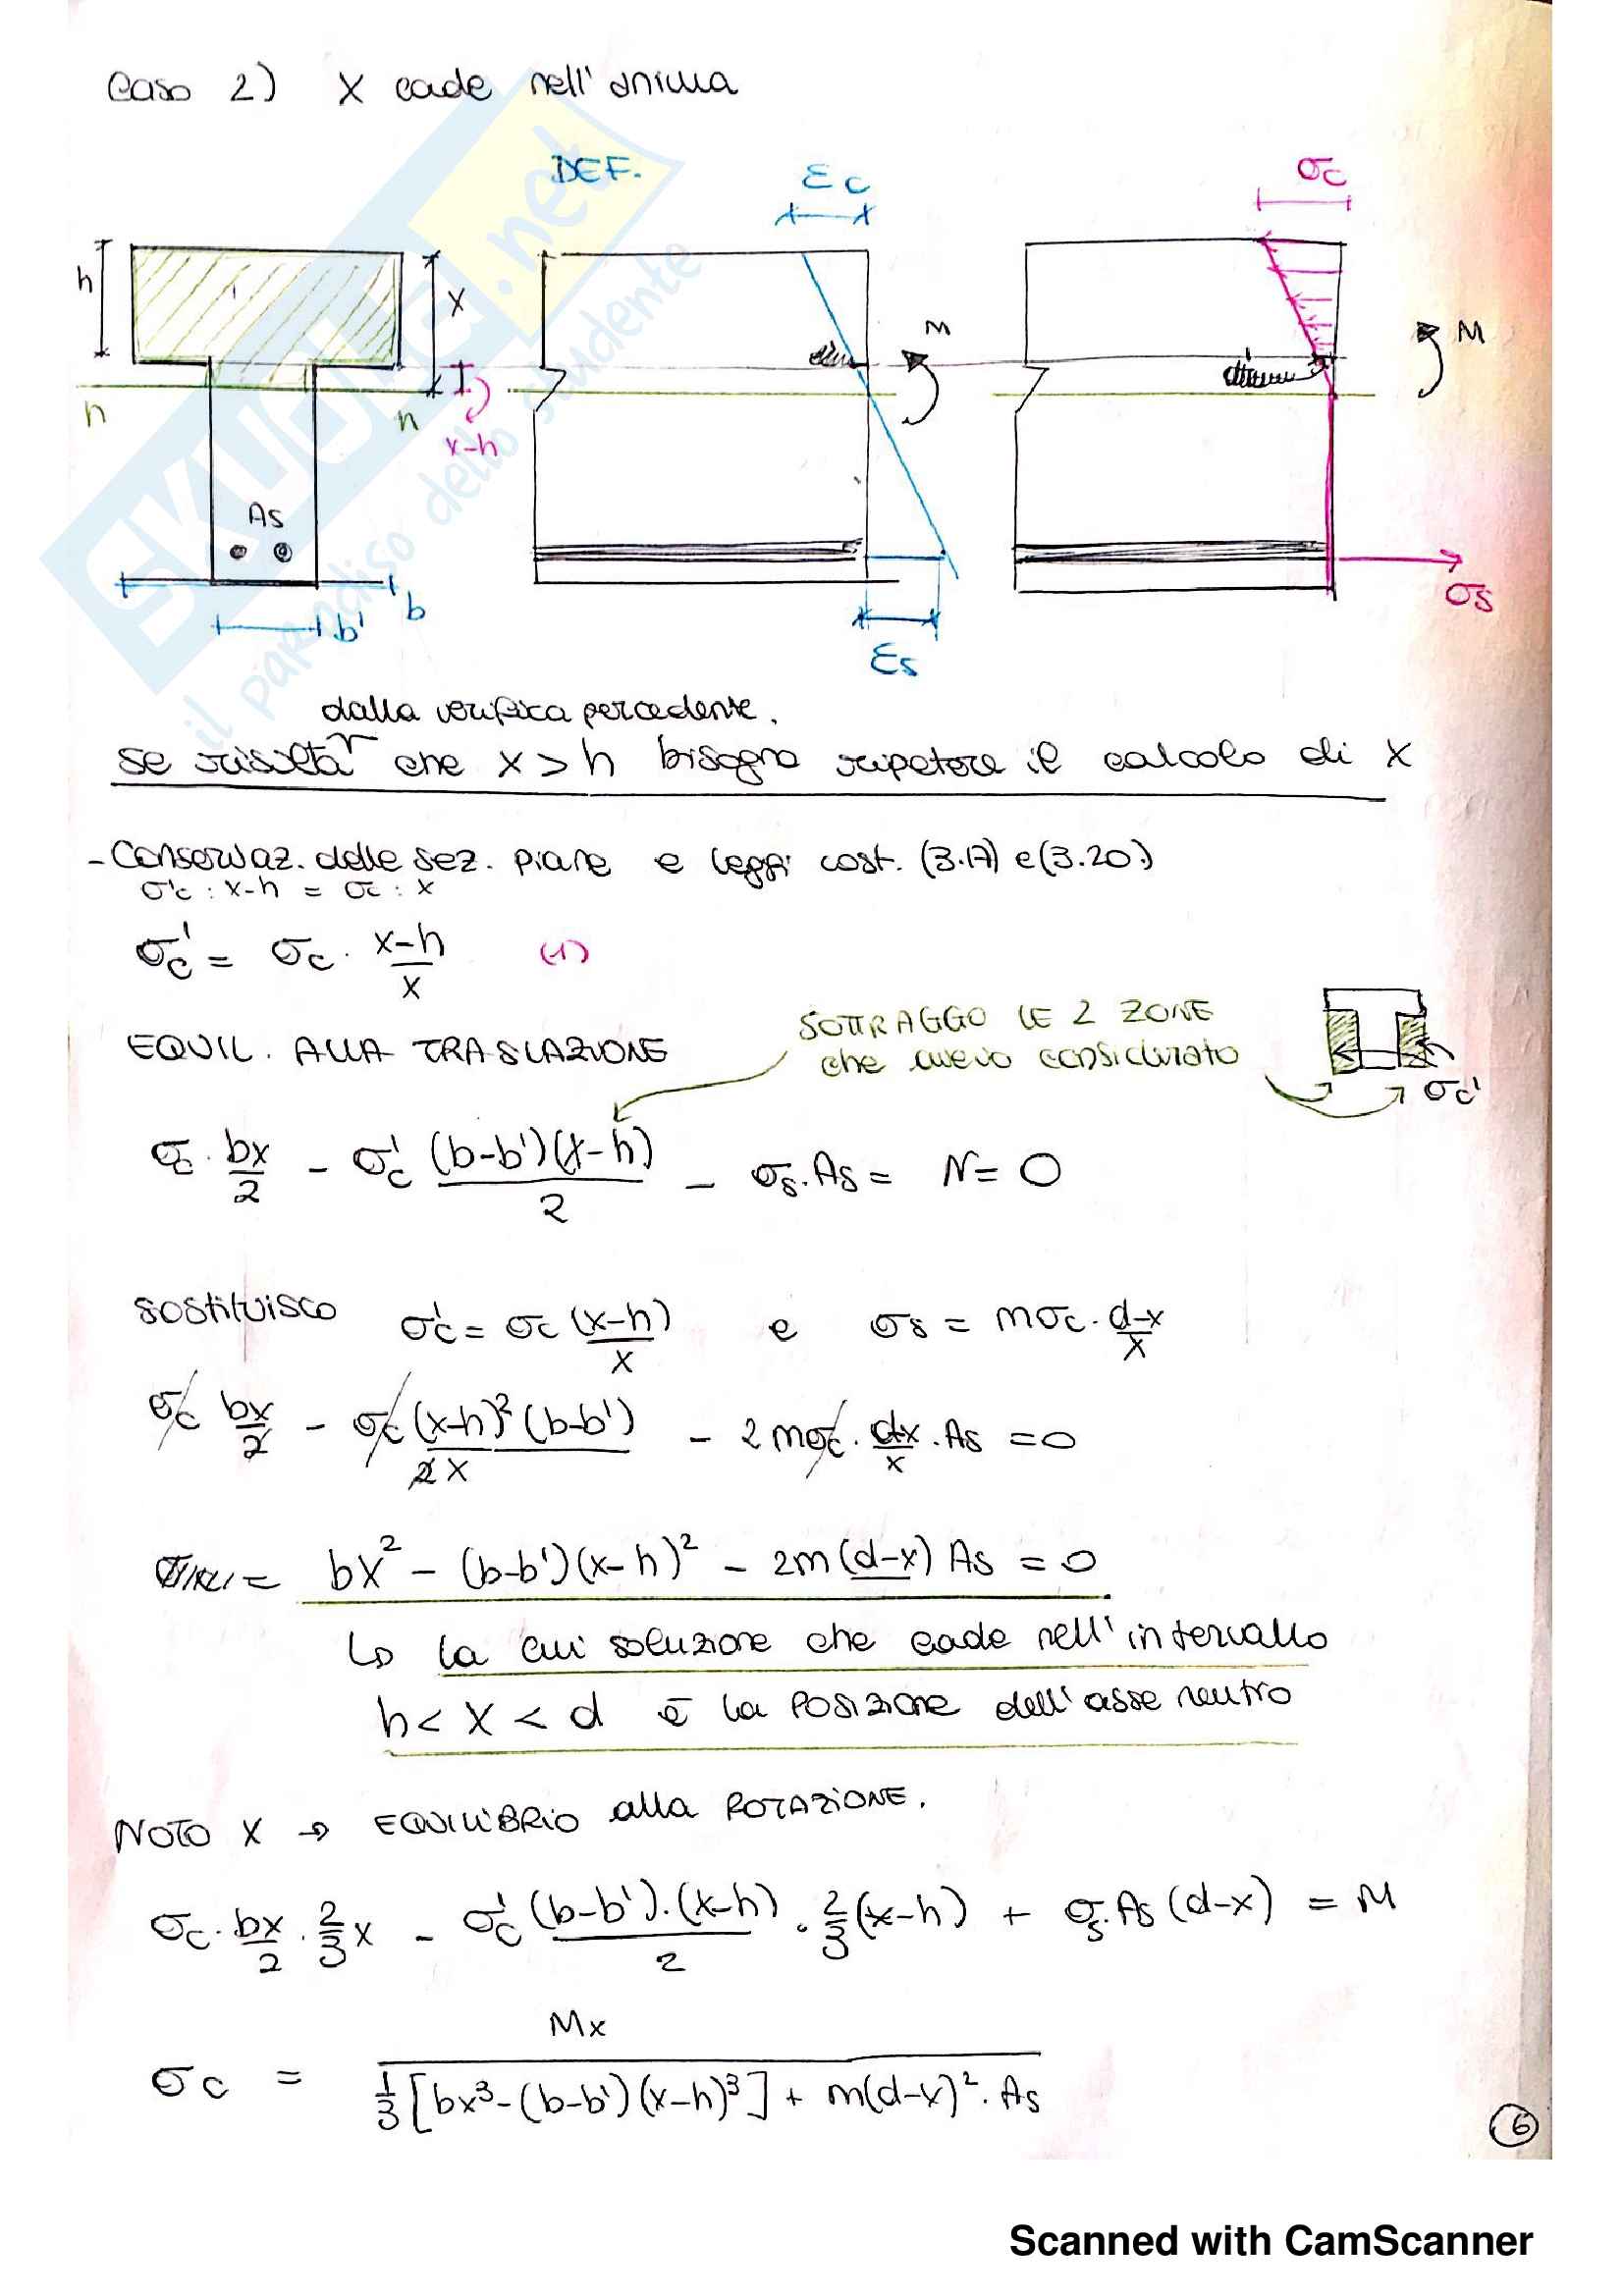 Caso 2) X cade nell'anima
DEF.
εc
σc
h
x
M
M
n
n
x-h
As
b
b'
εs
σs
dalla verifica percedente.
se risulta che x > h bisogna ripetere il calcolo di x
- Conservaz. delle sez. piane e leggi cost. (3.17) e (3.20)
σ'c : x-h = σc : x
σc' = σc · (x-h)/x (1)
SOTTRAGGO LE 2 ZONE
che avevo considerato
σc'
EQUIL. ALLA TRASLAZIONE
σc · bx/2 - σc' (b-b')(x-h)/2 - σs·As = N = 0
sostituisco σ'c = σc (x-h)/x e σs = mσc · (d-x)/x
σc bx/2 - σc (x-h)² (b-b')/2x - 2mσc · dx/x · As = 0
bx² - (b-b')(x-h)² - 2m(d-x) As = 0
↳ la cui soluzione che cade nell'intervallo
h < x < d è la posizione dell'asse neutro
NOTO X → EQUILIBRIO alla ROTAZIONE.
σc · bx/2 · 2/3 x - σc' (b-b')·(x-h)/2 · 2/3 (x-h) + σs·As (d-x) = M
σc = Mx / (1/3 [bx³-(b-b')(x-h)³] + m(d-x)²·As)
6
SKUOLA.net
il paradiso dello studente
Scanned with CamScanner